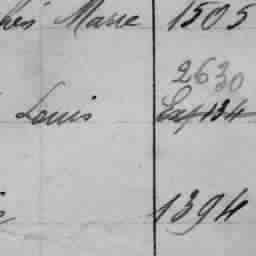 Marie 1505
2630
Louis Cap 134
1394